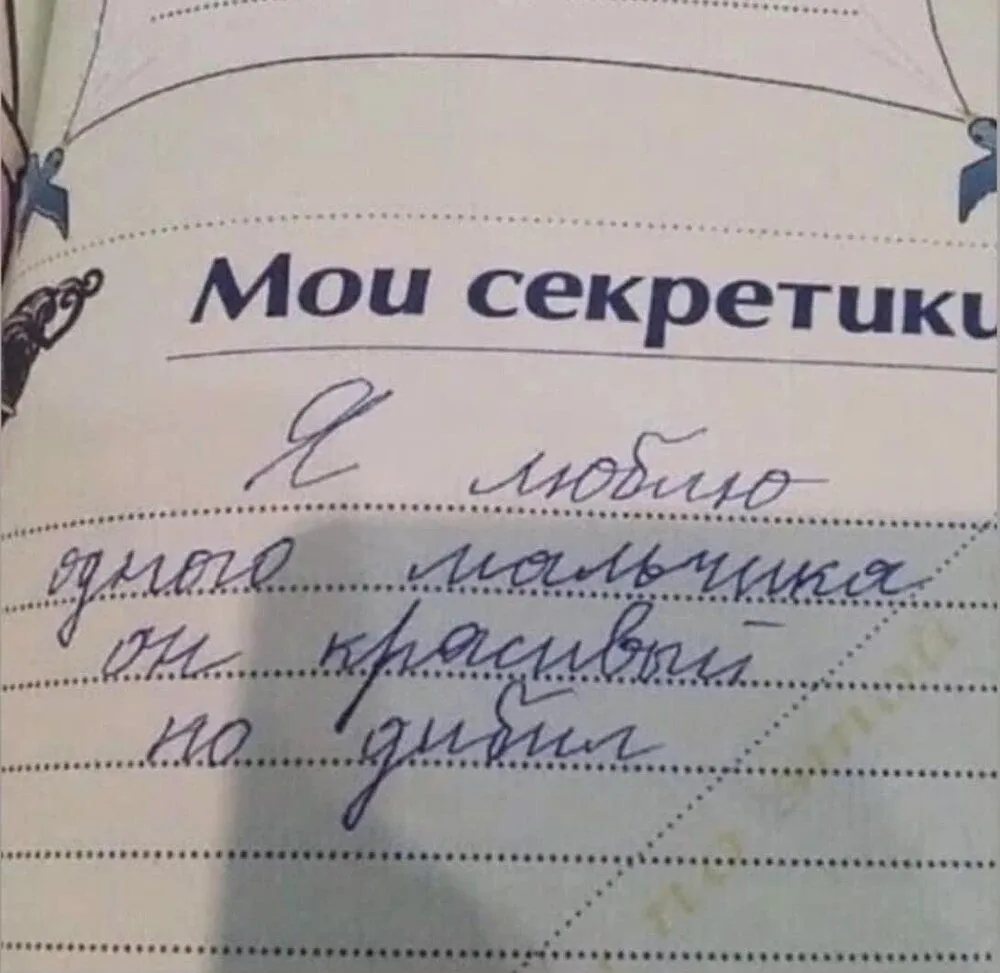 Мои секретики
Я люблю
одного мальчика
он красивый
но дибил
по линии